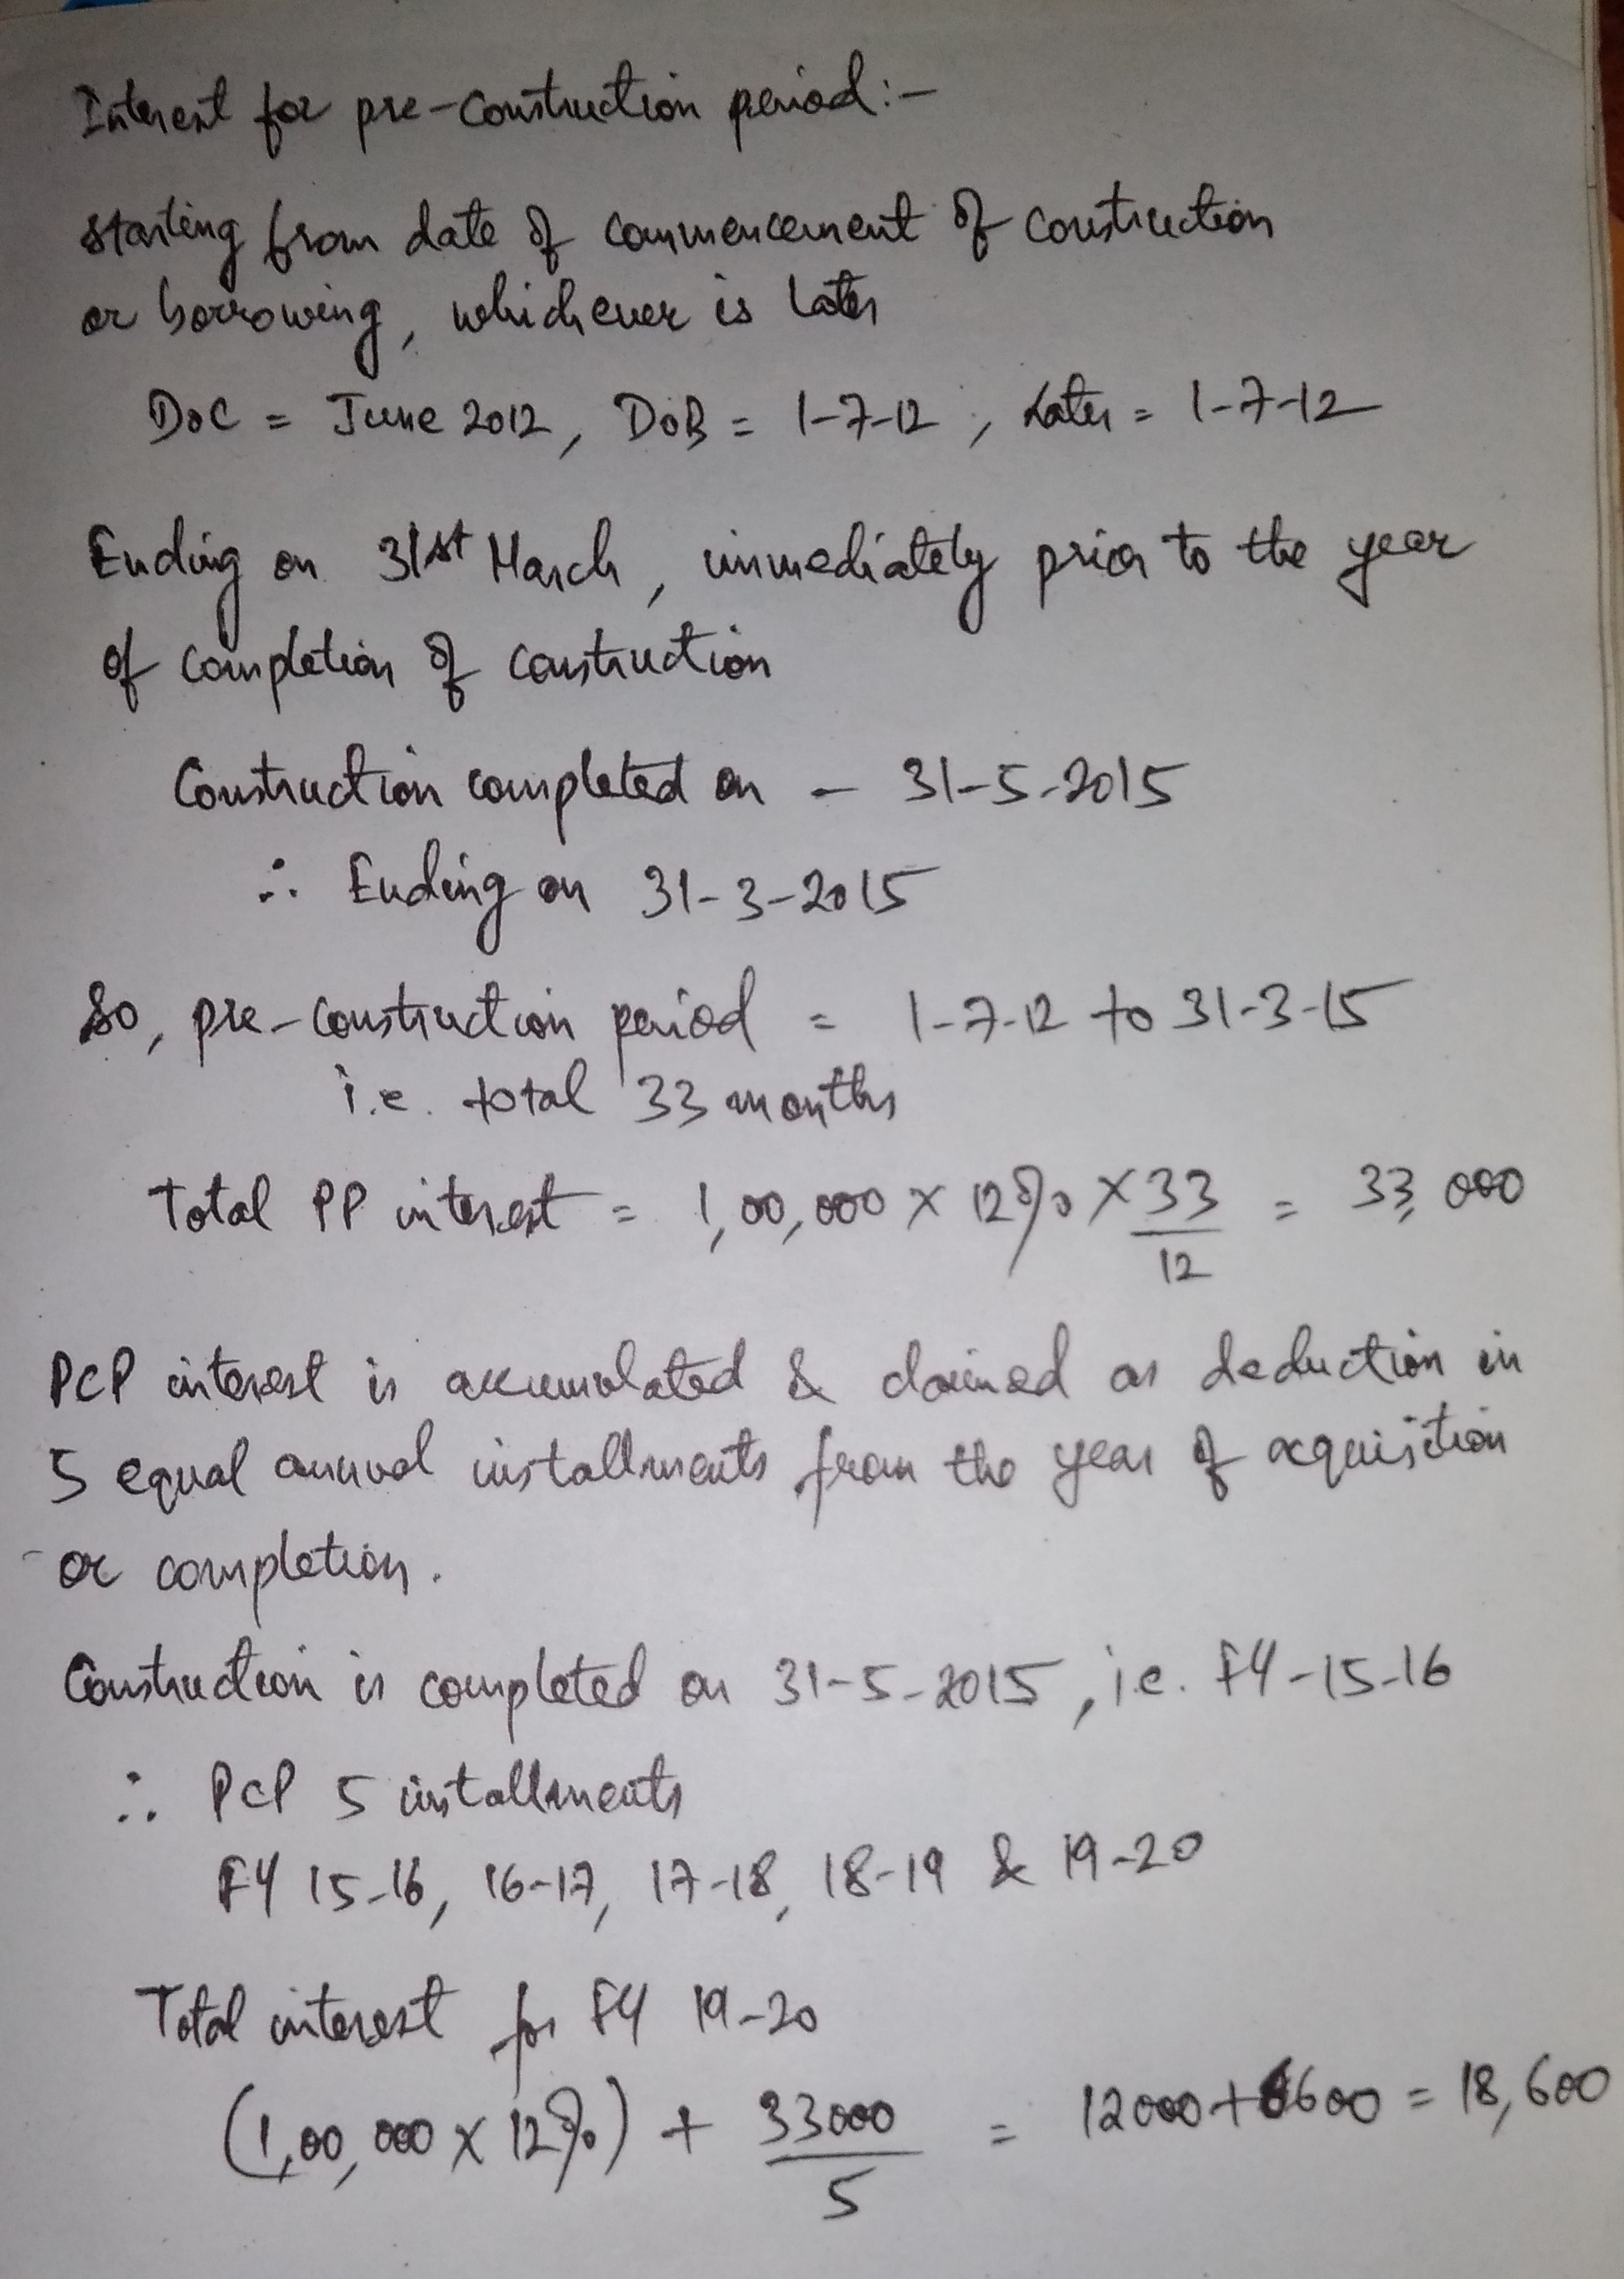 Interest for pre-construction period:-
starting from date of commencement of construction
or borrowing, whichever is later
DOC = June 2012, DOB = 1-7-12, Later = 1-7-12
Ending on 31st March, immediately prior to the year
of completion of construction
Construction completed on - 31-5-2015
∴ Ending on 31-3-2015
So, pre-construction period = 1-7-12 to 31-3-15
i.e. total 33 months
Total PP interest = 1,00,000 x 12% x 33/12 = 33,000
PCP interest is accumulated & claimed as deduction in
5 equal annual installments from the year of acquisition
or completion.
Construction is completed on 31-5-2015, i.e. FY-15-16
∴ PCP 5 installments
FY 15-16, 16-17, 17-18, 18-19 & 19-20
Total interest for FY 19-20
(1,00,000 x 12%) + 33000/5 = 12000+6600 = 18,600